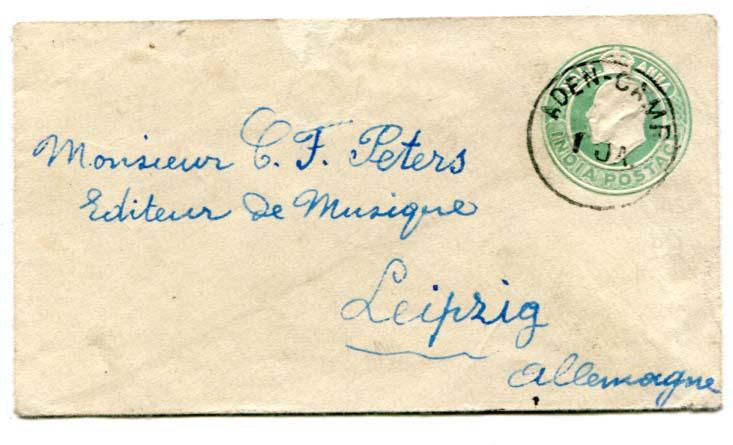 ANNA
INDIA POSTAG
ADEN-CAMP
1 JA
Monsieur C. F. Peters
Editeur de Musique
Leipzig
Allemagne